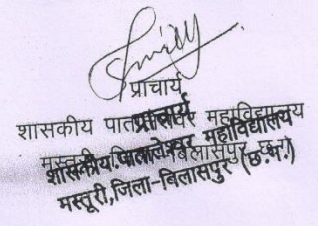 प्राचार्य
शासकीय पातालेश्वर महाविद्यालय
मस्तूरी, जिला-बिलासपुर (छ.ग.)
प्राचार्य
शासकीय पातालेश्वर महाविद्यालय
मस्तूरी,जिला-बिलासपुर (छ.ग.)